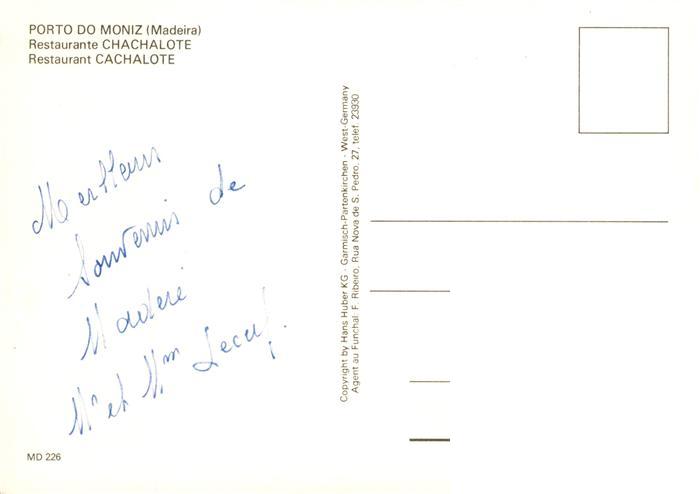 PORTO DO MONIZ (Madeira)
Restaurante CHACHALOTE
Restaurant CACHALOTE
Meilleurs
Souvenirs de
Madère
Mr et Mm
Copyright by Hans Huber KG - Garmisch-Partenkirchen - West-Germany
Agent au Funchal: F. Ribeiro, Rua Nova de S. Pedro, 27, telef. 23930
MD 226